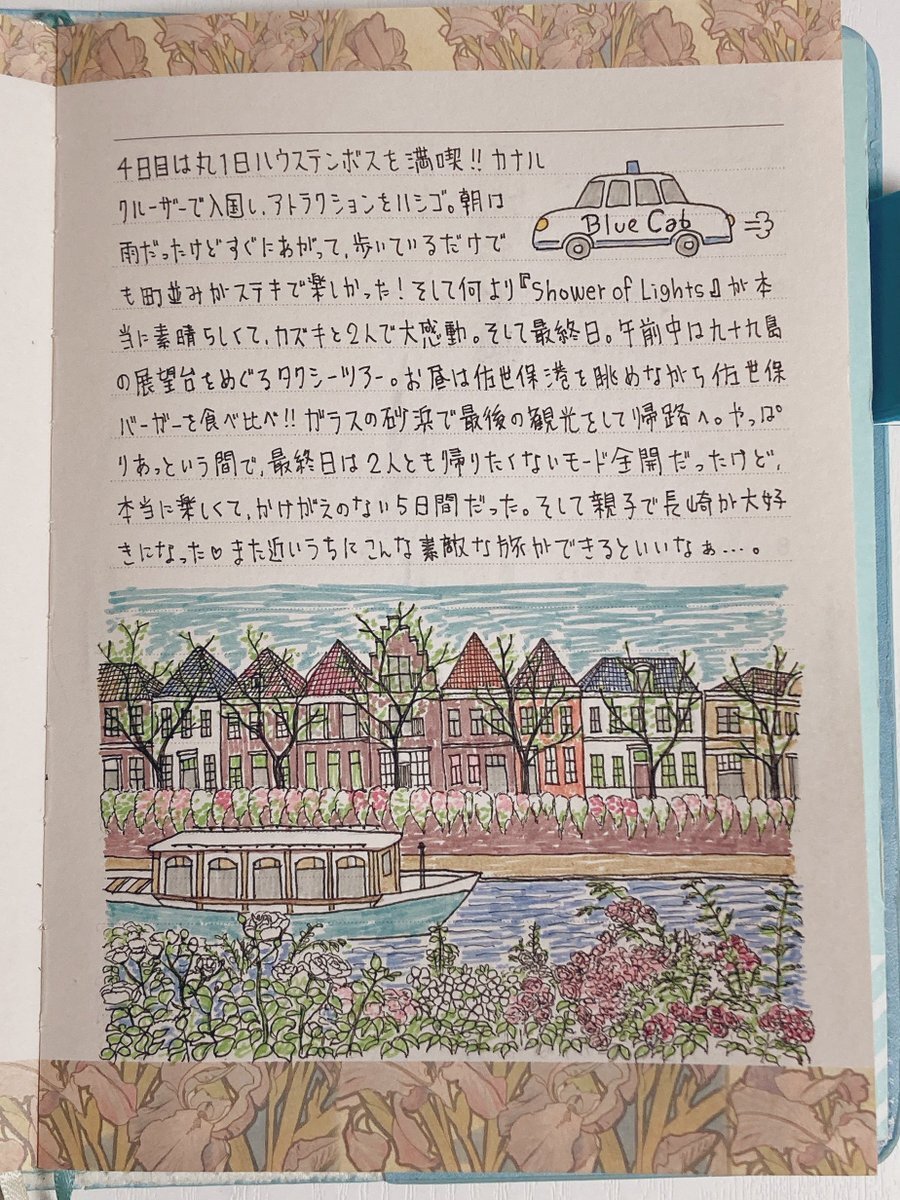 4日目は丸1日ハウステンボスを満喫!! カナル
クルーザーで入国し、アトラクションをハシゴ。朝は
雨だったけどすぐにあがって、歩いているだけで
も町並みがステキで楽しかった！そして何より『Shower of Lights』が本
当に素晴らしくて、カズキと2人で大感動。そして最終日。午前中は九十九島
の展望台をめぐるタクシーツアー。お昼は佐世保港を眺めながら佐世保
バーガーを食べ比べ!! ガラスの砂浜で最後の観光をして帰路へ。やっぱ
りあっという間で、最終日は2人とも帰りたくないモード全開だったけど、
本当に楽しくて、かけがえのない5日間だった。そして親子で長崎が大好
きになった♡また近いうちにこんな素敵な旅ができるといいなぁ…。
Blue Cab